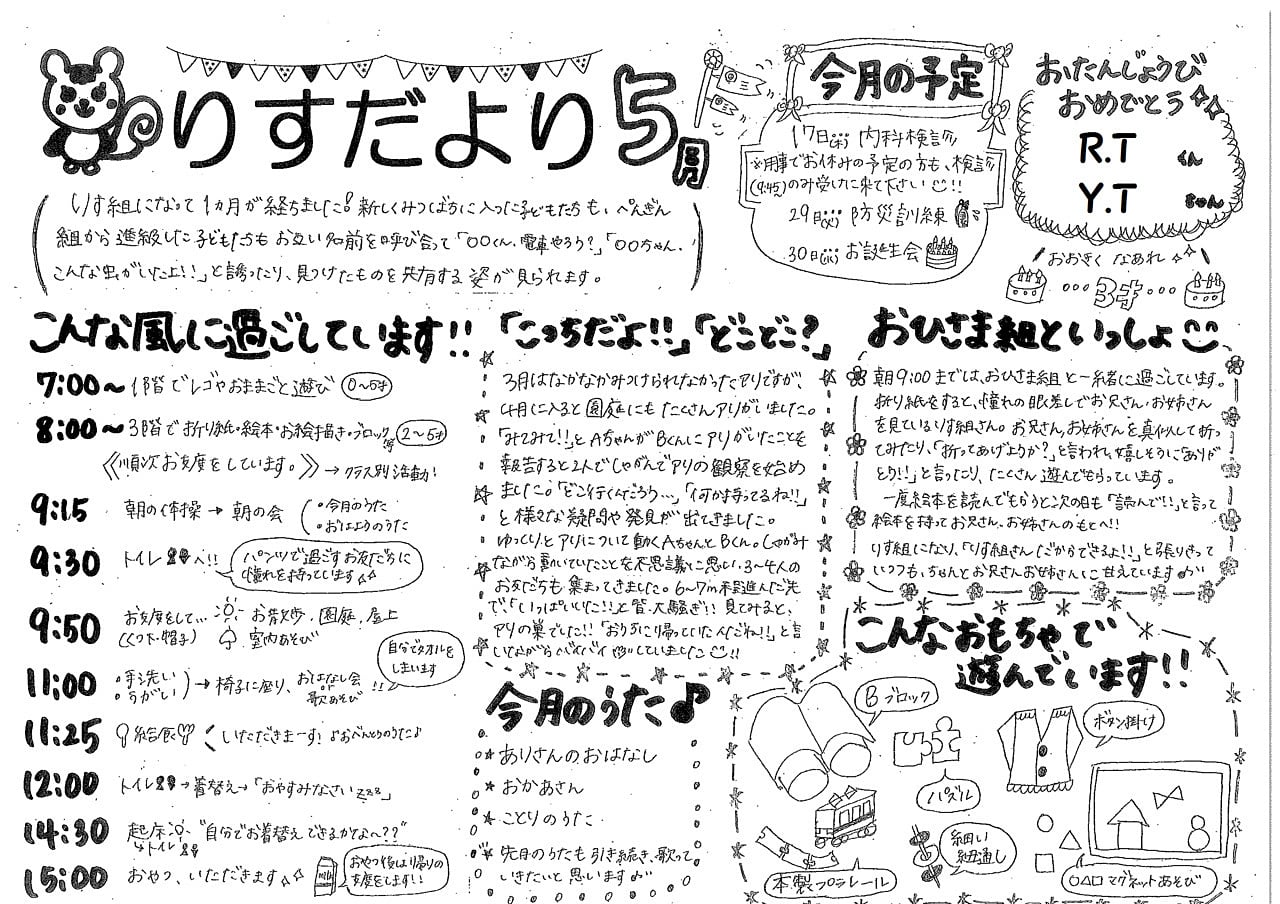 りすだより 5月
りす組になって1カ月が経ちました。新しくみつばちに入った子どもたちも、ぺんぎん
組から進級した子どもたちもお互い名前を呼び合って「〇〇くん、電車やろう?」「〇〇ちゃん、
こんな虫がいたよ!!」と誘ったり、見つけたものを共有する姿が見られます。
今月の予定
17日(木) 内科検診
※用事でお休みの予定の方も、検診
(9:45)のみ受けに来て下さい!!
29日(火) 防災訓練
30日(水) お誕生会
おたんじょうび
おめでとう
R.T くん
Y.T ちゃん
おおきく なあれ
…3才…
こんな風に過ごしています!!
7:00~ 1階でレゴやおままごと遊び 0~5才
8:00~ 3階でお折り紙・絵本・お絵描き・ブロック等 2~5才
《順次お支度をしています。》→クラス別活動!
9:15 朝の体操→朝の会
・今月のうた
・おはようのうた
9:30 トイレへ!!
パンツで過ごすお友だちに
憧れを持っています
9:50 お支度をして… お散歩、園庭、屋上
(くつ下・帽子) 室内あそび
11:00 ・手洗い ・うがい →椅子に座り、おはなし会 or 歌あそび !!
自分でタオルを
しまいます
11:25 給食 いただきまーす! ♪おべんとうのうた♪
12:00 トイレ→着替え→「おやすみなさいzzz」
14:30 起床 "自分でお着替えできるかな~??"
↳トイレ
15:00 おやつ、いただきます
milk
おやつ後は帰りの
支度をします!!
「こっちだよ!!」「どこどこ?」
3月はなかなかみつけられなかったアリですが、
4月に入ると園庭にもたくさんアリがいました。
「みてみて!!」とAちゃんがBくんにアリがいたことを
報告すると2人でしゃがんでアリの観察を始め
ました。「どこ行くんだろう…」「何か持ってるね!!」
と様々な疑問や発見が出てきました。
ゆっくりとアリについて動くAちゃんとBくん。しゃがみ
ながら動いていたことを不思議に思い、3~4人の
お友だちも集まってきました。6~7m程進んだ先
で、「いっぱいいた!!」と皆、大騒ぎ!! 見てみると、
アリの巣でした!!「おうちに帰っていたんだね!!」と言
いながらバイバイをしていました!!
今月のうた♪
ありさんのおはなし
おかあさん
ことりのうた
先月のうたも引き続き、歌って
いきたいと思います♪
おひさま組といっしょ
朝9:00までは、おひさま組と一緒に過ごしています。
折り紙をすると、憧れの眼差しでお兄さん・お姉さん
を見ているりす組さん。お兄さん、お姉さんを真似して折っ
てみたり、「折ってあげようか?」と言われ、嬉しそうに「ありが
とう!!」と言ったり、たくさん遊んでもらっています。
一度絵本を読んでもらうと次の日も「読んで!!」と言って
絵本を持ってお兄さん、お姉さんのもとへ!!
りす組になり、「りす組さんだからできるよ!!」と張りきって
いつつも、ちゃんとお兄さんお姉さんに甘えています♪
こんなおもちゃで
遊んでいます!!
Bブロック
パズル
ボタン掛け
木製プラレール
細い
紐通し
○△□マグネットあそび